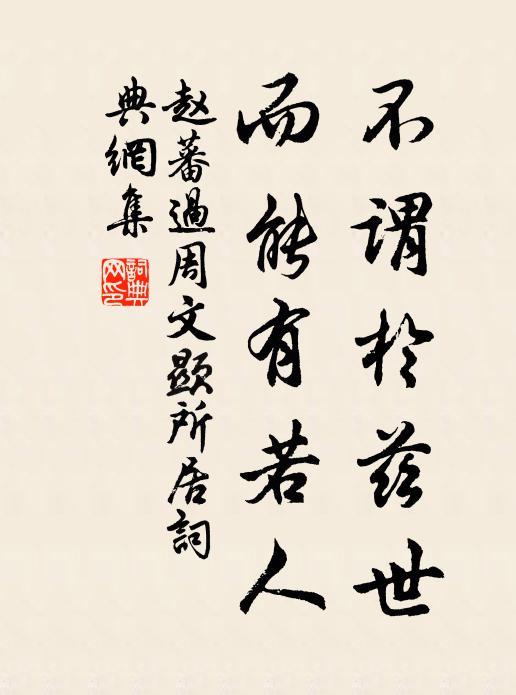 不谓於兹世
而能有若人
赵蕃過周文顕所居詞
典網集
詞典
网印